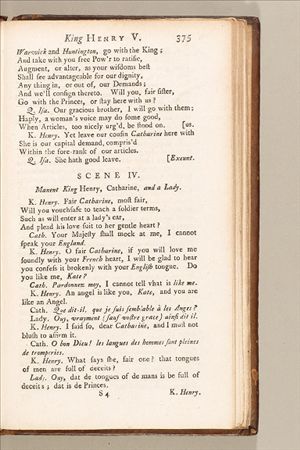 King HENRY V. 375
Warwick and Huntington, go with the King;
And take with you free Pow'r to ratifie,
Augment, or alter, as your wisdoms best
Shall see advantageable for our dignity,
Any thing in, or out of, our Demands;
And we'll consign thereto. Will you, fair sister,
Go with the Princes, or stay here with us?
Q. Isa. Our gracious brother, I will go with them;
Haply, a woman's voice may do some good,
When Articles, too nicely urg'd, be stood on. [us.
K. Henry. Yet leave our cousin Catharine here with
She is our capital demand, compris'd
Within the fore-rank of our articles.
Q. Isa. She hath good leave. [Exeunt.
SCENE IV.
Manent King Henry, Catharine, and a Lady.
K. Henry. Fair Catharine, most fair,
Will you vouchsafe to teach a soldier terms,
Such as will enter at a lady's ear,
And plead his love suit to her gentle heart?
Cath. Your Majesty shall mock at me, I cannot
speak your England.
K. Henry. O fair Catharine, if you will love me
soundly with your French heart, I will be glad to hear
you confess it brokenly with your English tongue. Do
you like me, Kate?
Cath. Pardonnez moy, I cannot tell vhat is like me.
K. Henry. An angel is like you, Kate, and you are
like an Angel.
Cath. Que dit-il, que je suis semblable à les Anges?
Lady. Ouy, vrayment (sauf vostre grace) ainsi dit il.
K. Henry. I said so, dear Catharine, and I must not
blush to affirm it.
Cath. O bon Dieu! les langues des hommes sont pleines
de tromperies.
K. Henry. What says she, fair one? that tongues
of men are full of deceits?
Lady. Ouy, dat de tongues of de mans is be full of
deceits; dat is de Princes.
S 4 K. Henry.